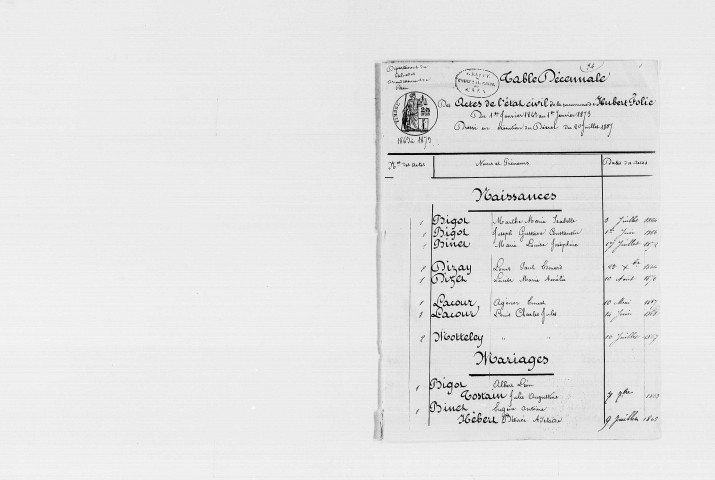 Département du
Calvados
Arrondissement de
Caen
Table Décennale
Des Actes de l'état civil de la commune d'Hubert Folie
Du 1er Janvier 1863 au 1er Janvier 1873
Dressé en exécution du Décret du 20 Juillet 1807
1863 à 1873
Nos des actes Noms et Prénoms Dates des actes
Naissances
1 Bigot Marthe Marie Isabelle Juillet
1 Bigot Joseph Gustave 1er Juin
2 Binet Marie Louise Joséphine 17 Juillet
2 Dizay Louis Paul 22 Xbre
1 Dizet Louise Marie Amélie 10 Août
1 Lacour Ernest 10 Mai 1867
1 Lacour Louis Charles Jules 14 Juin
2 Motteley " " 10 Juillet
Mariages
1 Bigot Albert Léon
Tostain Julie Augustine 7
1 Binet Eugène Antoine
Hébert Désirée 9 Juillet